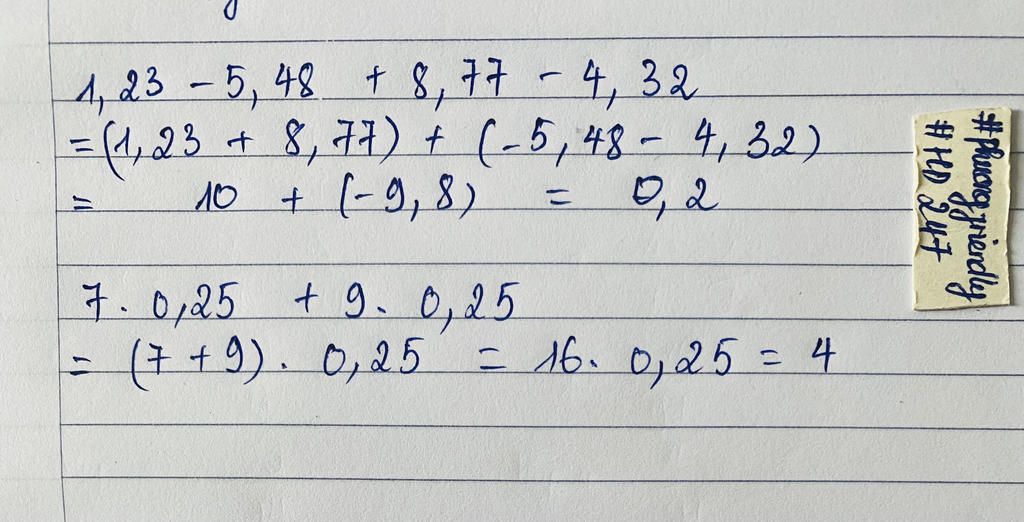 1,23 - 5,48 + 8,77 - 4,32
= (1,23 + 8,77) + (-5,48 - 4,32)
= 10 + (-9,8) = 0,2
7. 0,25 + 9. 0,25
= (7 + 9). 0,25 = 16. 0,25 = 4
#phuongfriendly
#HD 247